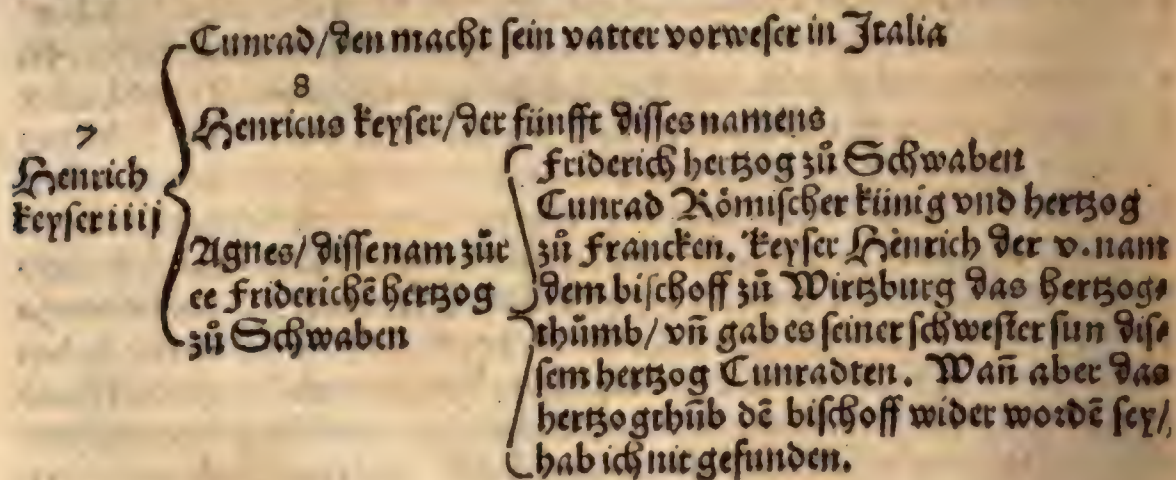 Cunrad/den macht sein vatter vorweser in Italia
8
Henricus keyser/der fünfft disses namens
7
Henrich
keyser iiij
Agnes/disse nam zůr
ee Friderichē hertzog
zů Schwaben
Friderich hertzog zů Schwaben
Cunrad Römischer künig vnd hertzog
zů Francken. keyser Henrich der v. nam
dem bischoff zů Wirtzburg das hertzog⸗
thůmb/vñ gab es seiner schwester sun dis⸗
sem hertzog Cunradten. Wañ aber das
hertzogthůb dē bischoff wider wordē sey/
hab ich nit gefunden.